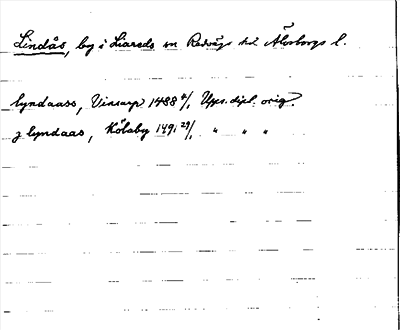 Lindås, by i Liareds sn Redvägs hd. Älvsborgs l.
lyndaass, Vinsarp 1488 4/1 Ups. dipl. orig.
j lyndaas, Kölaby 1491 29/1 " " "